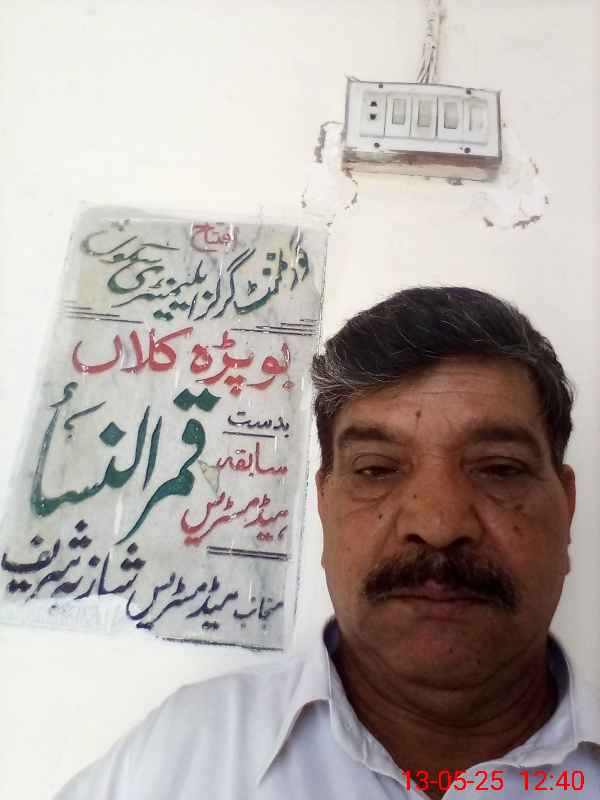 افتتاح
گورنمنٹ گرلز ایلیمنٹری سکول
بوپڑہ کلاں
بدست
قمر النساء
سابقہ
ہیڈ مسٹریس
منجانب ہیڈ مسٹریس شازیہ شریف
13-05-25 12:40